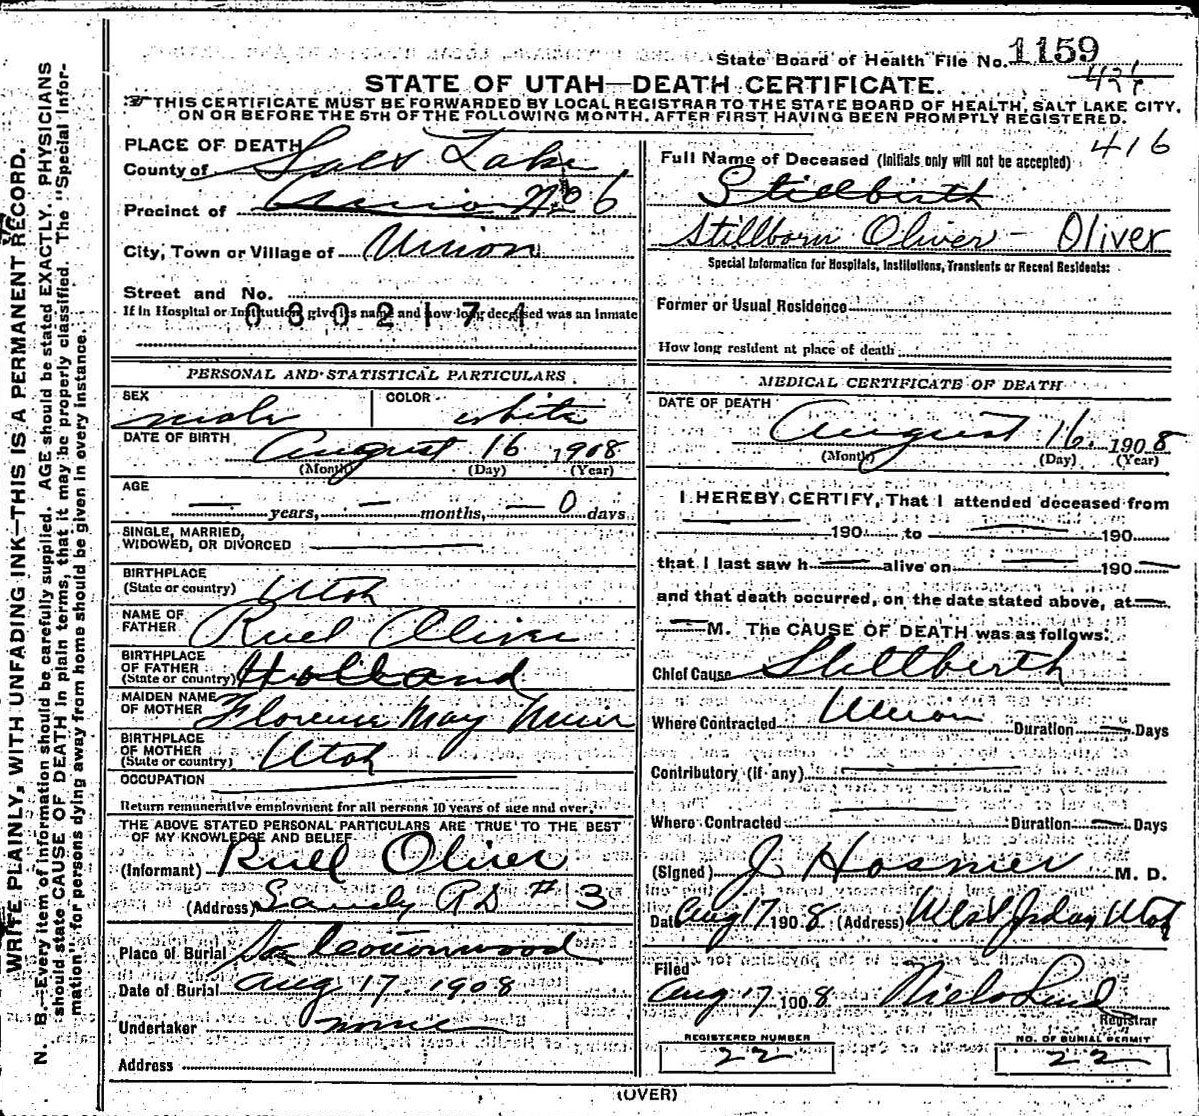 State Board of Health File No. 1159
424
STATE OF UTAH—DEATH CERTIFICATE.
THIS CERTIFICATE MUST BE FORWARDED BY LOCAL REGISTRAR TO THE STATE BOARD OF HEALTH, SALT LAKE CITY,
ON OR BEFORE THE 5TH OF THE FOLLOWING MONTH. AFTER FIRST HAVING BEEN PROMPTLY REGISTERED.
WRITE PLAINLY, WITH UNFADING INK—THIS IS A PERMANENT RECORD.
N. B.—Every item of information should be carefully supplied. AGE should be stated EXACTLY. PHYSICIANS
should state CAUSE OF DEATH in plain terms, that it may be properly classified. The "Special Infor-
mation" for persons dying away from home should be given in every instance.
PLACE OF DEATH
County of Salt Lake
Precinct of Union No 6
City, Town or Village of Union
Street and No.
0302171
If in Hospital or Institution give its name and how long deceased was an inmate
PERSONAL AND STATISTICAL PARTICULARS
SEX male COLOR white
DATE OF BIRTH August 16 1908
(Month) (Day) (Year)
AGE
— years, — months, — 0 days
SINGLE, MARRIED,
WIDOWED, OR DIVORCED
BIRTHPLACE
(State or country) Utah
NAME OF
FATHER Ruel Oliver
BIRTHPLACE
OF FATHER
(State or country) Holland
MAIDEN NAME
OF MOTHER Florence May Muir
BIRTHPLACE
OF MOTHER
(State or country) Utah
OCCUPATION
Return remunerative employment for all persons 10 years of age and over.
THE ABOVE STATED PERSONAL PARTICULARS ARE TRUE TO THE BEST
OF MY KNOWLEDGE AND BELIEF
(Informant) Ruell Oliver
(Address) Sandy RD # 3
Place of Burial So Cottonwood
Date of Burial Aug 17. 1908
Undertaker none
Address
416
Full Name of Deceased (Initials only will not be accepted)
Stillbirth
Stillborn Oliver — Oliver
Special Information for Hospitals, Institutions, Transients or Recent Residents:
Former or Usual Residence
How long resident at place of death
MEDICAL CERTIFICATE OF DEATH
DATE OF DEATH
August 16. 1908
(Month) (Day) (Year)
I HEREBY CERTIFY, That I attended deceased from
— 190 to — 190
that I last saw h— alive on — 190—
and that death occurred, on the date stated above, at —
— M. The CAUSE OF DEATH was as follows:
Chief Cause Stillbirth
Where Contracted Union Duration — Days
Contributory (if any) —
Where Contracted — Duration — Days
(Signed) J Hosmer M. D.
Date Aug 17 1908 (Address) West Jordan Utah
Filed
Aug 17 1908 Niels Lind
Registrar
REGISTERED NUMBER
22
NO. OF BURIAL PERMIT
22
(OVER)